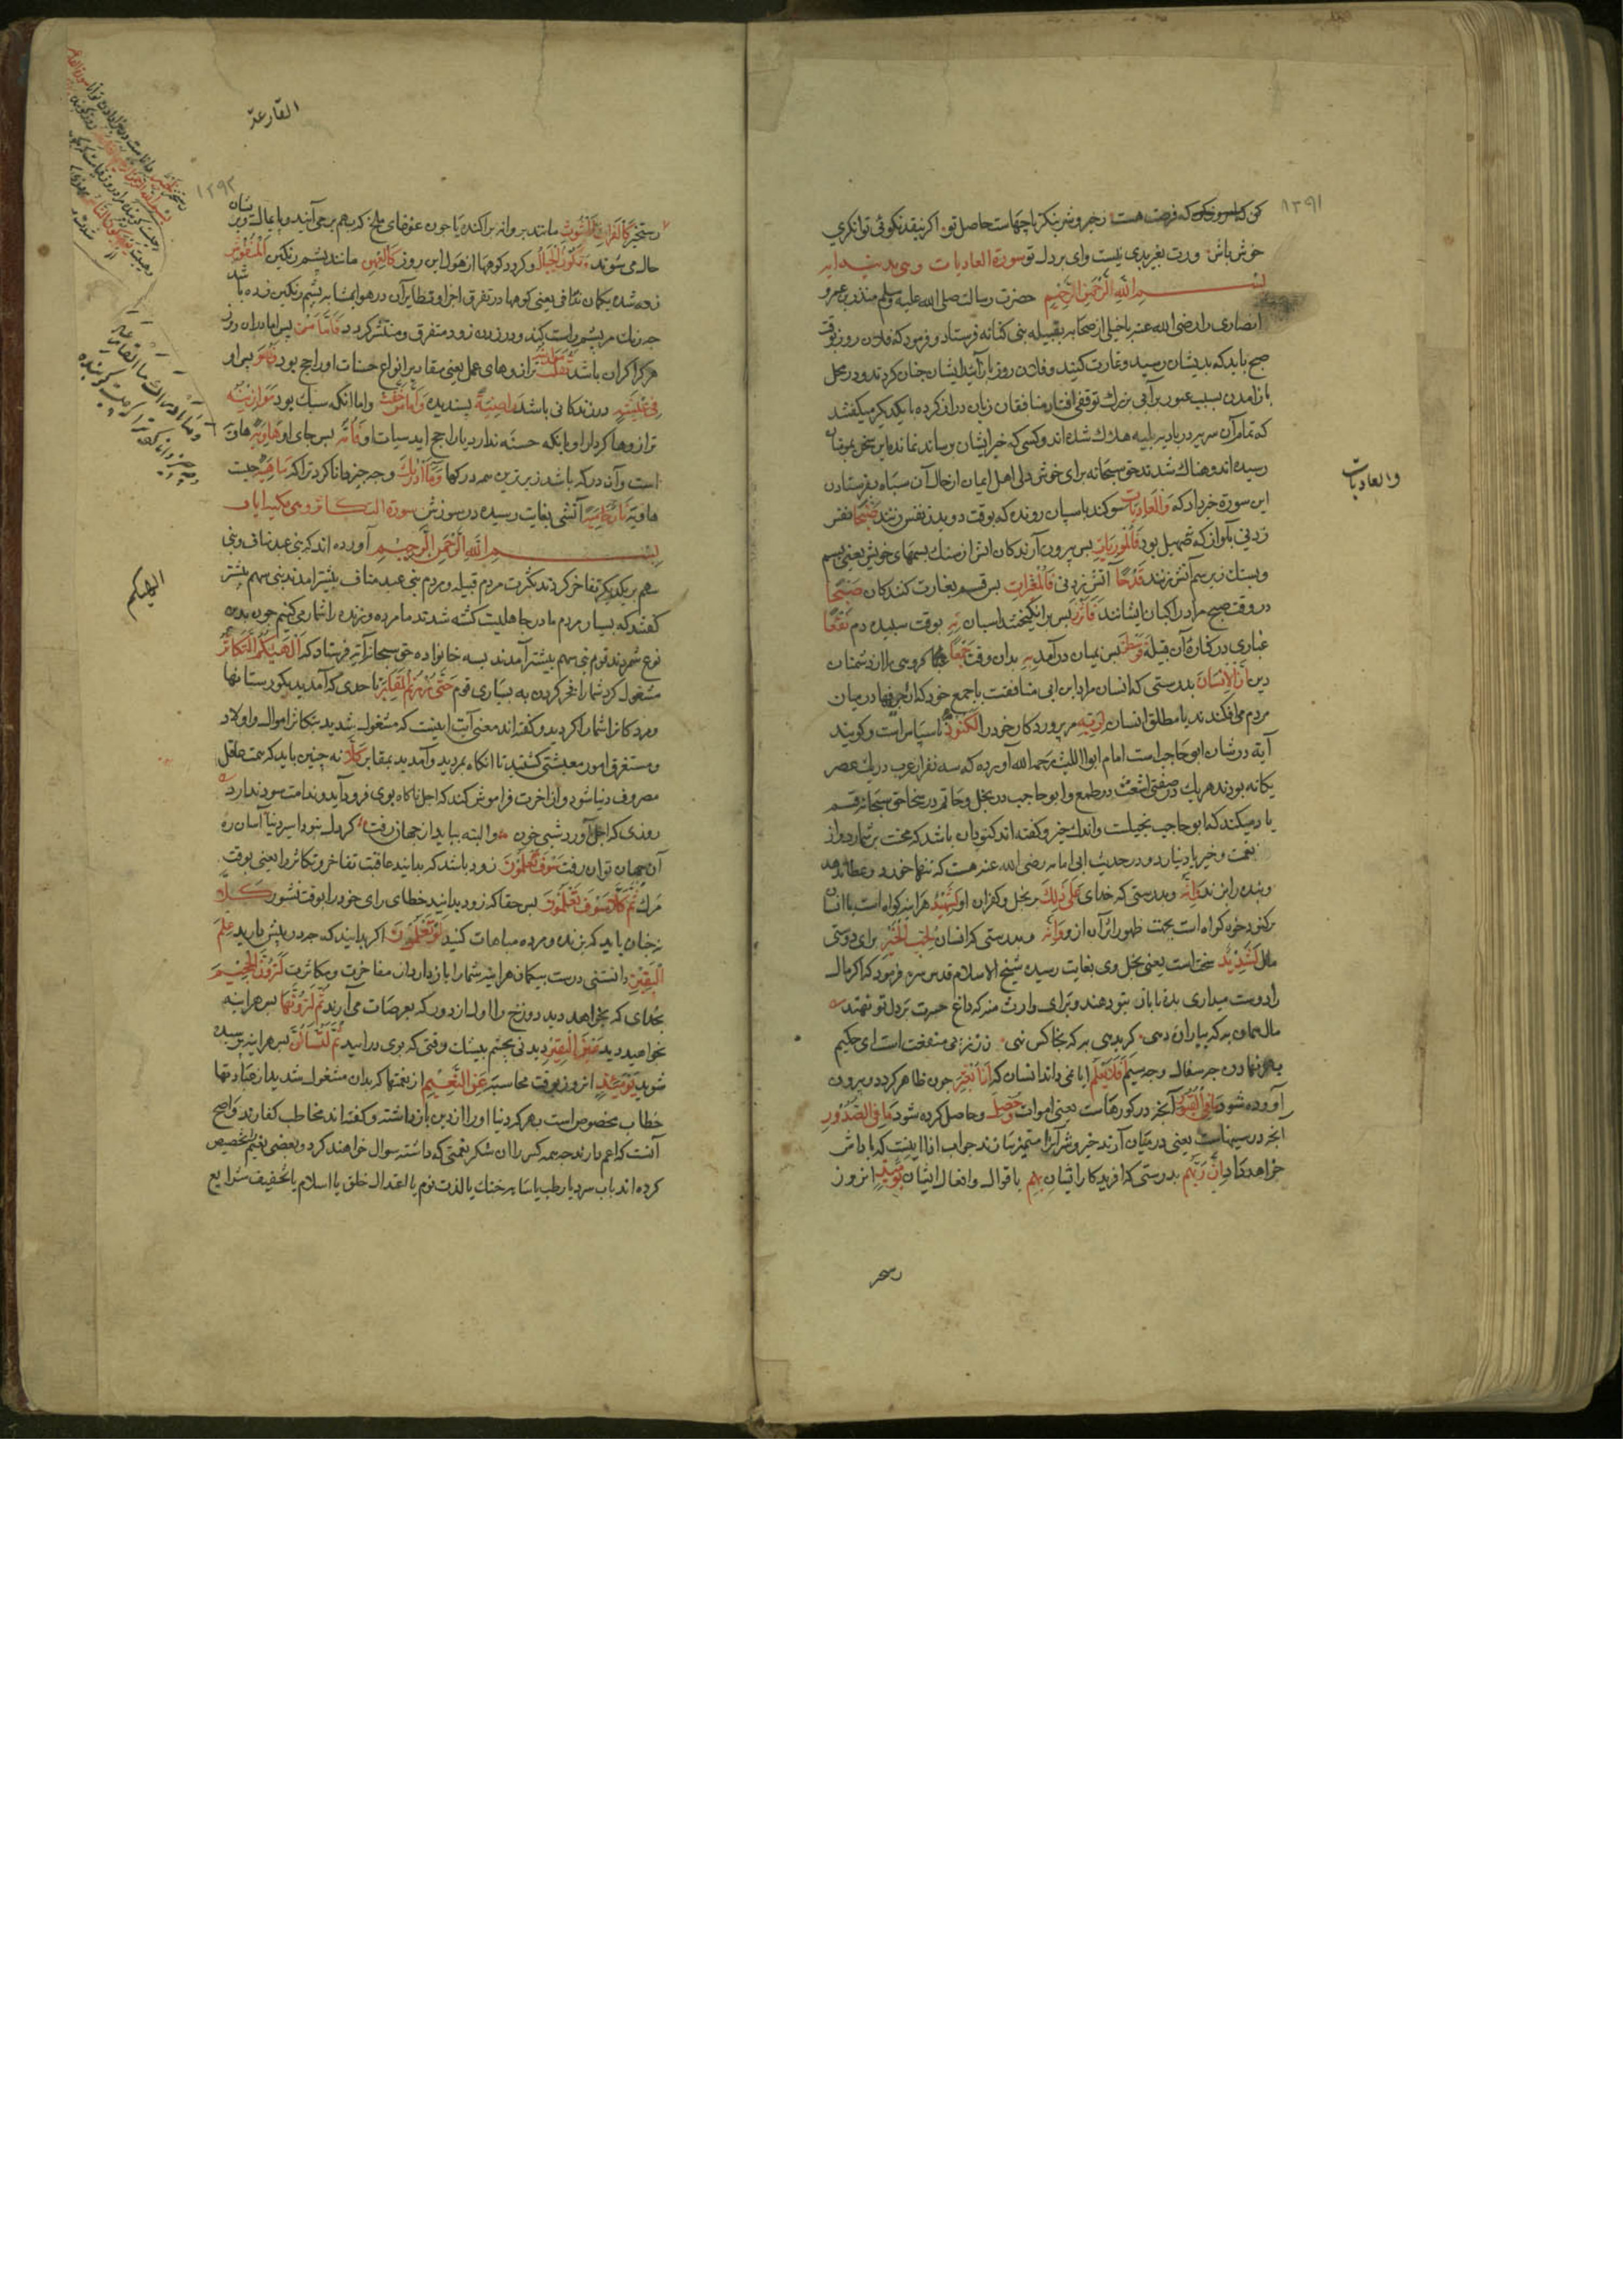 ۱۳۹۱
کن که امروزکه که فرصت هست رخیر و شر بنکر تا چهاست حاصل تو اکر نیقد نکوئی توانکری
خوش باش ورت بغیر بدی نیست وای بر دل تو سورة العادیات وهی
بسم الله الرحمن الرحیم حضرت رسالت صلی الله علیه وسلم منذر بن عمرو
انصاری را رضی الله عنه با خیلی از صحابه بقبیله بنی کنانه فرستاد و فرمود که فلان روز بوقت
صبح باید که بدیشان رسید و غارت کنید و فلان روز باز آئید ایشان چنان کردند و در محل
باز امدن بسبب عبور بر آبی بزرک توقفی افتاد منافقان زبان دراز کرده با یکدیکر میکفتند
که تمام آن سریه در بادیه بلیه هلاک شده اند و کسی که خبر ایشان برساند نمانده این سخن بمؤمنان
رسیده اندوهناک شدند حق سبحانه برای خوش دلی اهل ایمان از حال آن سپاه بفرستادن
این سورة خبر داد که والعادیات سوکند باسپان رونده که بوقت دویدن نفس زنند ضبحا نفس
زدنی بآواز که صهیل بود فالموریات پس بیرون آرندکان اتش از سنک بسمهای خویش یعنی سم
وبسنک زیر سم آتش زنند قدحا آتش زدنی فالمغیرات پس قسم بغارت کنندکان صبحا
در وقت صبح مراد راکبان ایشانند فاثرن پس برانکیختند اسبان به بوقت سپیده دم نقعا
غباری در کناره آن قبیله فوسطن پس بمیان در آمدند به بدان وقت جمعا کروهی را از دشمنان
دین ان الانسان بدرستی که انسان مراد ابن ابی منافقست یا جمع خودکه ارجیفها در میان
مردم می افکندند یا مطلق انسان لربه مر پروردکار خود را لکنود ناسپاس است و کویند
آیة در شان ابو حاجب است امام ابو اللیث رحمه الله آورده که سه نفر از عرب در یک عصر
یکانه بودند هر یک در صفتی اشعث در طمع و ابو حاجب در بخل و حاتم در سخا حق سبحانه قسم
یاد میکند که ابو حاجب بخیلست واندک خیر و کفته اند کنود ان باشد که محنت بر شمارد و از
نعمت و خیر یاد نیارد و در حدیث ابی امامه رضی الله عنه هست که تنها خورد و عطا ندهد
وبنده را بزند وانه وبدرستی که خدای علی ذلک بر بخل و کفران او لشهید هر اینه کواه است یا انسان
بر کنود خود کواه است بجهت ظهور اثر آن ازو وانه وبدرستی که انسان لحب الخیر برای دوستی
مال لشدید سخت است یعنی بخل وی بغایت رسیده شیخ الاسلام قدس سره فرمود که اکر مال
را دوست میداری بده تا باز بتو دهند و برای وارث منه که داغ حسرت بر دل تو نهند
مال همان به که بیاران دهی کر بدهی به که بخاک نهی زر ز پی منفعت است ای حکیم
بهر نهادن چه سفال و چه سیم افلا یعلم ایا نمی داند انسان که اذا بعثر چون ظاهر کرده و بیرون
آورده شود ما فی القبور آنچه در کورهاست یعنی اموات وحصل و حاصل کرده شود ما فی الصدور
انچه در سینهاست یعنی در میان آرند خیر و شر آنرا متمیز سازند جواب اذا اینست که پاداش
خواهد داد ان ربهم بدرستی که افریدکار ایشان بهم باقوال و افعال ایشان یومئذ انروز
والعادیات
القارعة
۱۳۹۲
رستخیز کالفراش المبثوث مانند پروانه پراکنده یا چون غوغای ملخ که برهم برمی آیند و پایمال
حال می شوند وتکون الجبال و کردد کوهها از هول این روز کالعهن مانند پشم رنکین المنفوش
زده شده بکمان ندافی یعنی کوهها در تفرق اجزا و تطایر آن در هوا بمشابه پشم رنکین زده باشد
چه رنک مر پشم را سست کند و در زدن زود متفرق و منتشر کردد فاما من پس اما دران روز
هر کرا کران باشد ثقلت ترازوهای عمل یعنی مقادیر انواع حسنات او راجح بود فهو پس او
فی عیشة در زندکانی باشد راضیة پسندیده واما من خفت واما انکه سبک بود موازینه
ترازوها کردار او یانکه حسنه ندارد یا راجح اید سیئات او فامه پس جای او هاویه هاویه
است وآن درکه باشد زیرترین همه درکها وما ادریک وچه چیز دانا کرد ترا که ماهیه چیست
هاویه نار حامیة آتشی بغایت رسیده در سوزش سورة التکاثر وهی مکیة
بسم الله الرحمن الرحیم آورده اند که بنی عبد مناف و بنی
سهم بر یکدیکر تفاخر کردند بکثرت مردم قبیله و مردم بنی عبد مناف بیشتر امدند بنی سهم
کفتند که بسیار مردم ما در جاهلیت کشته شدند ما مرده و زنده را شمار می کنیم چون بدین
نوع شمردند قوم بنی سهم بیشتر آمدند بسه خانواده حق سبحانه آیة فرستاد که الهیکم التکاثر
مشغول کرد شما را فخر کردن به بسیاری قوم حتی زرتم المقابر تا حدی که آمدید بکورستانها
ومردکانرا شمار کردید و کفته اند معنی آیت اینست که مشغول شدید بتکاثر اموال و اولاد
ومستغرق امور معیشتی کشتید تا انکاه بمردید وآمدید بمقابر کلا نه چنین باید که همت عاقل
مصروف دنیا شود و از اخرت فراموش کند که اجل ناکاه بوی فرود آید و ندامت سود ندارد
روزی که اجل آورد شبی خون والبته بباید از جهان رفت کر دل نبود اسیر دنیا آسان ره
آن جهان توان رفت سوف تعلمون زود باشد که بدانید عاقبت تفاخر و تکاثر را یعنی بوقت
مرک ثم کلا سوف تعلمون پس حقا که زود بدانید خطای رای خود را بوقت نشور کلا
نچنان باید که بزنده و مرده مباهات کنید لو تعلمون اکر بدانید که چه در پیش دارید علم
الیقین دانستنی درست بیکمان هر اینه شما را باز دارد از مفاخرت و مکاثرت لترون الجحیم
بخدای که بخواهد دید دوزخ را اول از دور که بعرصات می آرند ثم لترونها پس هر اینه
بخواهید دید عین الیقین دیدنی بچشم بیشک وقتی که بوی در ایید ثم لتسئلن پس هر اینه پرسیده
شوید یومئذ انروز بوقت محاسبه عن النعیم از نعمتها که بدان مشغول شدید از عبادتها
خطاب مخصوص است بهر که دنیا او را از دین باز داشته و کفته اند مخاطب کفارند واصح
آنست که اعم دارند چه همه کس را از شکر نعمتی که داشته سوال خواهند کرد و بعضی نعیم تخصیص
کرده اند باب سرد یا رطب یا سایه خنک یا لذت نوم یا اعتدال خلق یا اسلام یا تخفیف شرایع
وما ادریک ما القارعة
وچه چیز دانا کرد ترا که چیست کوبنده
الهیکم